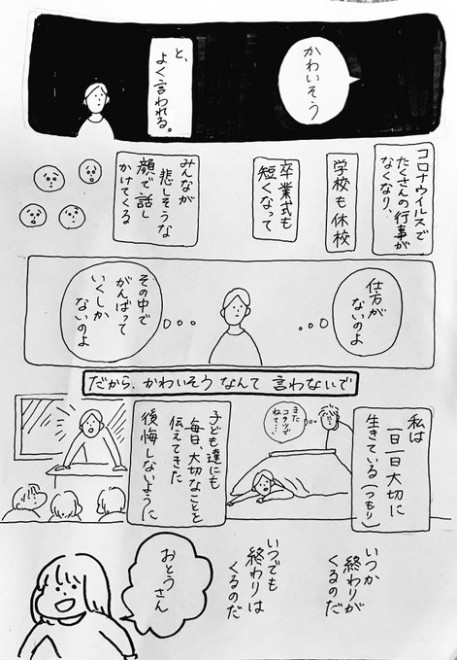 かわいそう
と、
よく言われる。
コロナウイルスで
たくさんの行事が
なくなり、
学校も休校
卒業式も
短くなって
みんなが
悲しそうな
顔で話し
かけてくる
仕方が
ないのよ
その中で
がんばって
いくしか
ないのよ
だから、かわいそうなんて言わないで
私は
一日一日大切に
生きている(つもり)
また
コタツで
ねて…
子ども達にも
毎日、大切なことを
伝えてきた
後悔しないように
いつか
終わりが
くるのだ
いつでも
終わりは
くるのだ
おとうさん